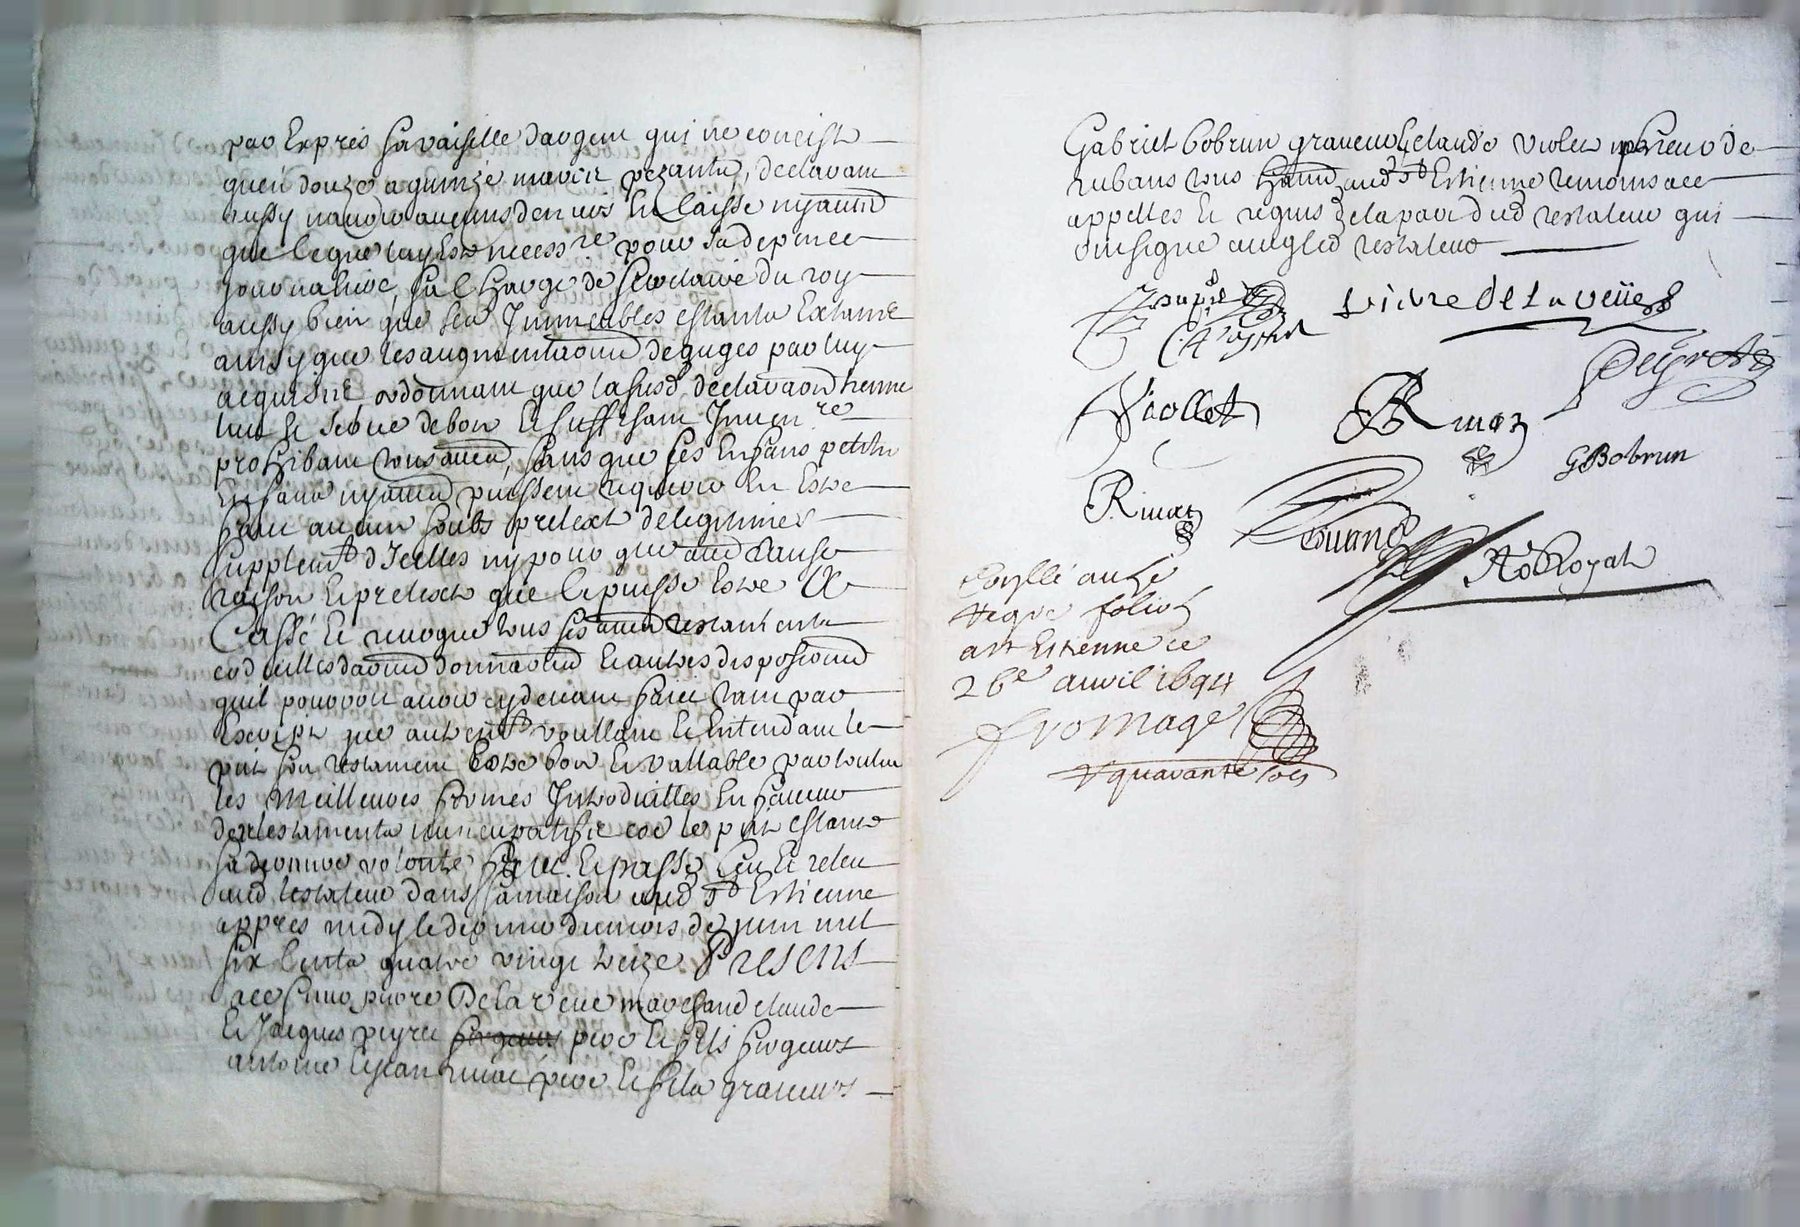 par Exprés sa vaiselle dargent qui ne concist
quen douze a quinze marcs pezants, declarant
aussy navoir aucuns deniers En laisse ny aud
que ce que luy Est necess.re pour sa depence
journaliere, sa Charge de secretaire du roy
aussy bien que ses Jmmeubles estants Extants
ainsy que les augmentaons de gages par luy
acquises ordonnant que la susd declaraon tienne
lieu et serve de bon et suffisant Jnven.re
prohibant tous aues, sans que ses Enfans petits
Enfans ny aues puissent requerir En Estre
faict aucun soubs pretext de legitimes
supplem.t d'Jcelles ny pour que aues Cause
raison et pretexte que ce puisse Estre Et
Cassé et revoque tous ses aues testaments
codicilles daons donnaons et autres disposions
quil pourroit avoir cy devant faict tant par
Escript que autrem.t voullant et Entendant le
pnt son testament Estre bon et vallable par toutes
les Meilleures formes Jntroduittes En faveur
des testaments nuncupatifs coe le pnt estant
sa derniere volonté faict et passé Leu et releu
aud testateur dans sa maison aud St Estienne
appres midy le dernier du mois de juin mil
six Cents quatre vingt treize Presens
acc sieur pierre De la veue marchand claude
et Jacques peyret pere et fils forgeurs
antoine et jean rimoz pere et fils graveurs
Gabriel bobrun graveur et claude violet ouvrieur de
rubans tous hants aud St Estienne temoins acc
appelles et requis de la part dud testateur qui
ont signe avec led testateur
pierre de La veüe
peyret
Viollet
Rimoz
GBobrun
Rimoz
No Royal
Conllé au
Regre folio
a St Estienne ce
26e avril 1694
fromage
R quarante sols